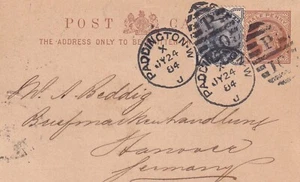 POST CARD
THE ADDRESS ONLY TO BE
PADDINGTON·W
X
JY24
84
J
PADDINGTON·W
X
JY24
84
J
W. A. Reddig
Briefmarkenhandlung
Hanover
Germany